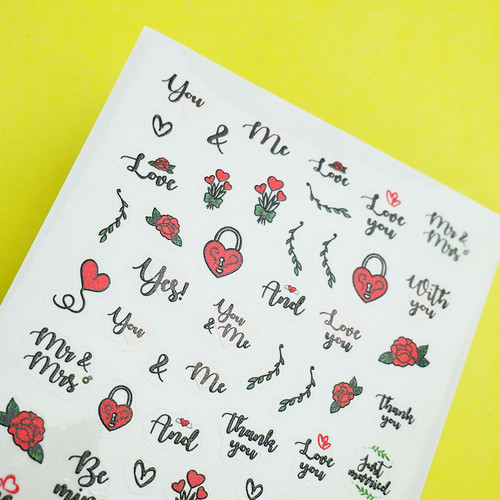 You
&
Me
Love
Love
you
Mr &
Mrs
Love
With
you
Yes!
And
You
& Me
Love
you
You
&
Me
Thank
you
Mr &
Mrs
And
Thank
you
Love
you
Just
married
Be
mine